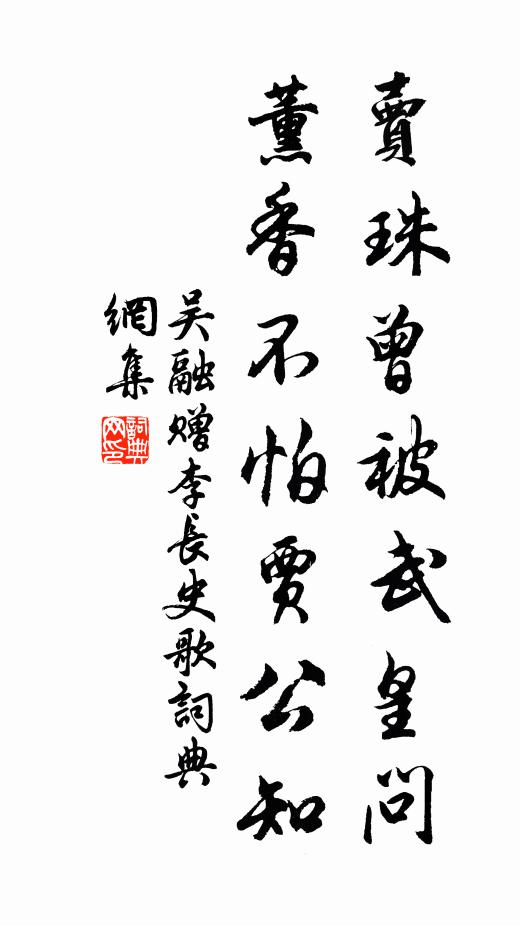 賣珠曾被武皇問
薰香不怕賈公知
吳融贈李長史歌詞典
網集
詞典
网印